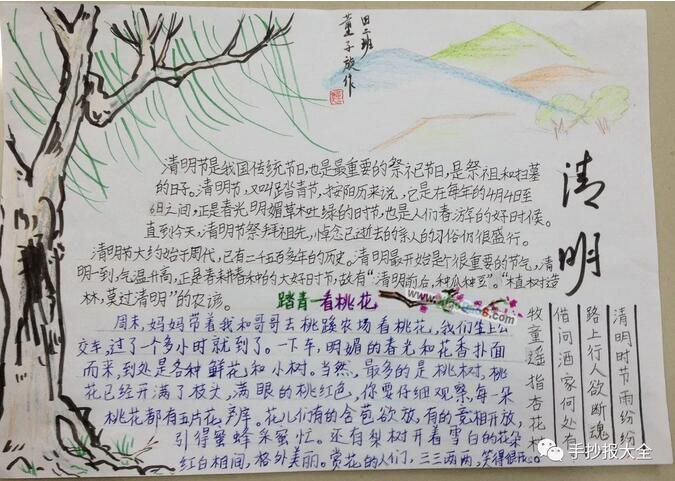 四二班
董子
作
清明节是我国传统节日,也是最重要的祭祀节日,是祭祖和扫墓
的日子。清明节,又叫踏青节,按阳历来说,它是在每年的4月4日至
6日之间,正是春光明媚草木吐绿的日节,也是人们春游的好时候。
直到今天,清明节祭拜祖先,悼念已逝去的亲人的习俗仍很盛行。
清明节大约始于周代,已有二千五百多年的历史。清明最开始是个很重要的节气,清
明一到,气温升高,正是春耕春种的大好时节,故有“清明前后,种瓜种豆”。“植树造
林,莫过清明”的农谚。
踏青—看桃花
周末,妈妈带着我和哥哥去桃蹊农场看桃花,我们坐上公
交车,过了一个多小时就到了。一下车,明媚的春光和花香扑面
而来,到处是各种鲜花和小树。当然,最多的是桃树,桃
花已经开满了枝头,满眼的桃红色,你要仔细观察,每一朵
桃花都有五片花。花儿们有的含苞欲放,有的竞相开放,
引得蜜蜂采蜜忙。还有梨树开着雪白的花朵
红白相间,格外美丽。赏花的人们,三三两两,笑得很
清明
清明时节雨纷纷
路上行人欲断魂
借问酒家何处有
牧童遥指杏花村
手抄报大全